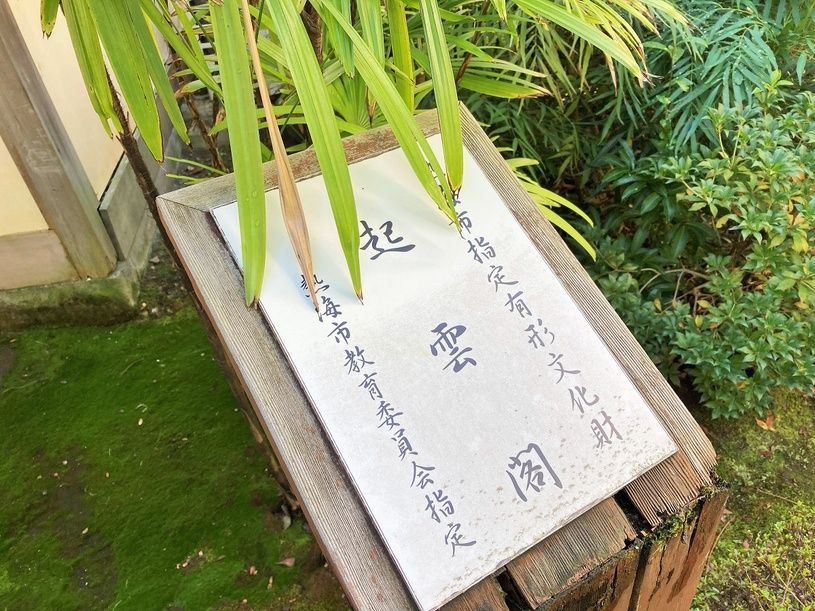 市指定有形文化財
起雲閣
熱海市教育委員会指定